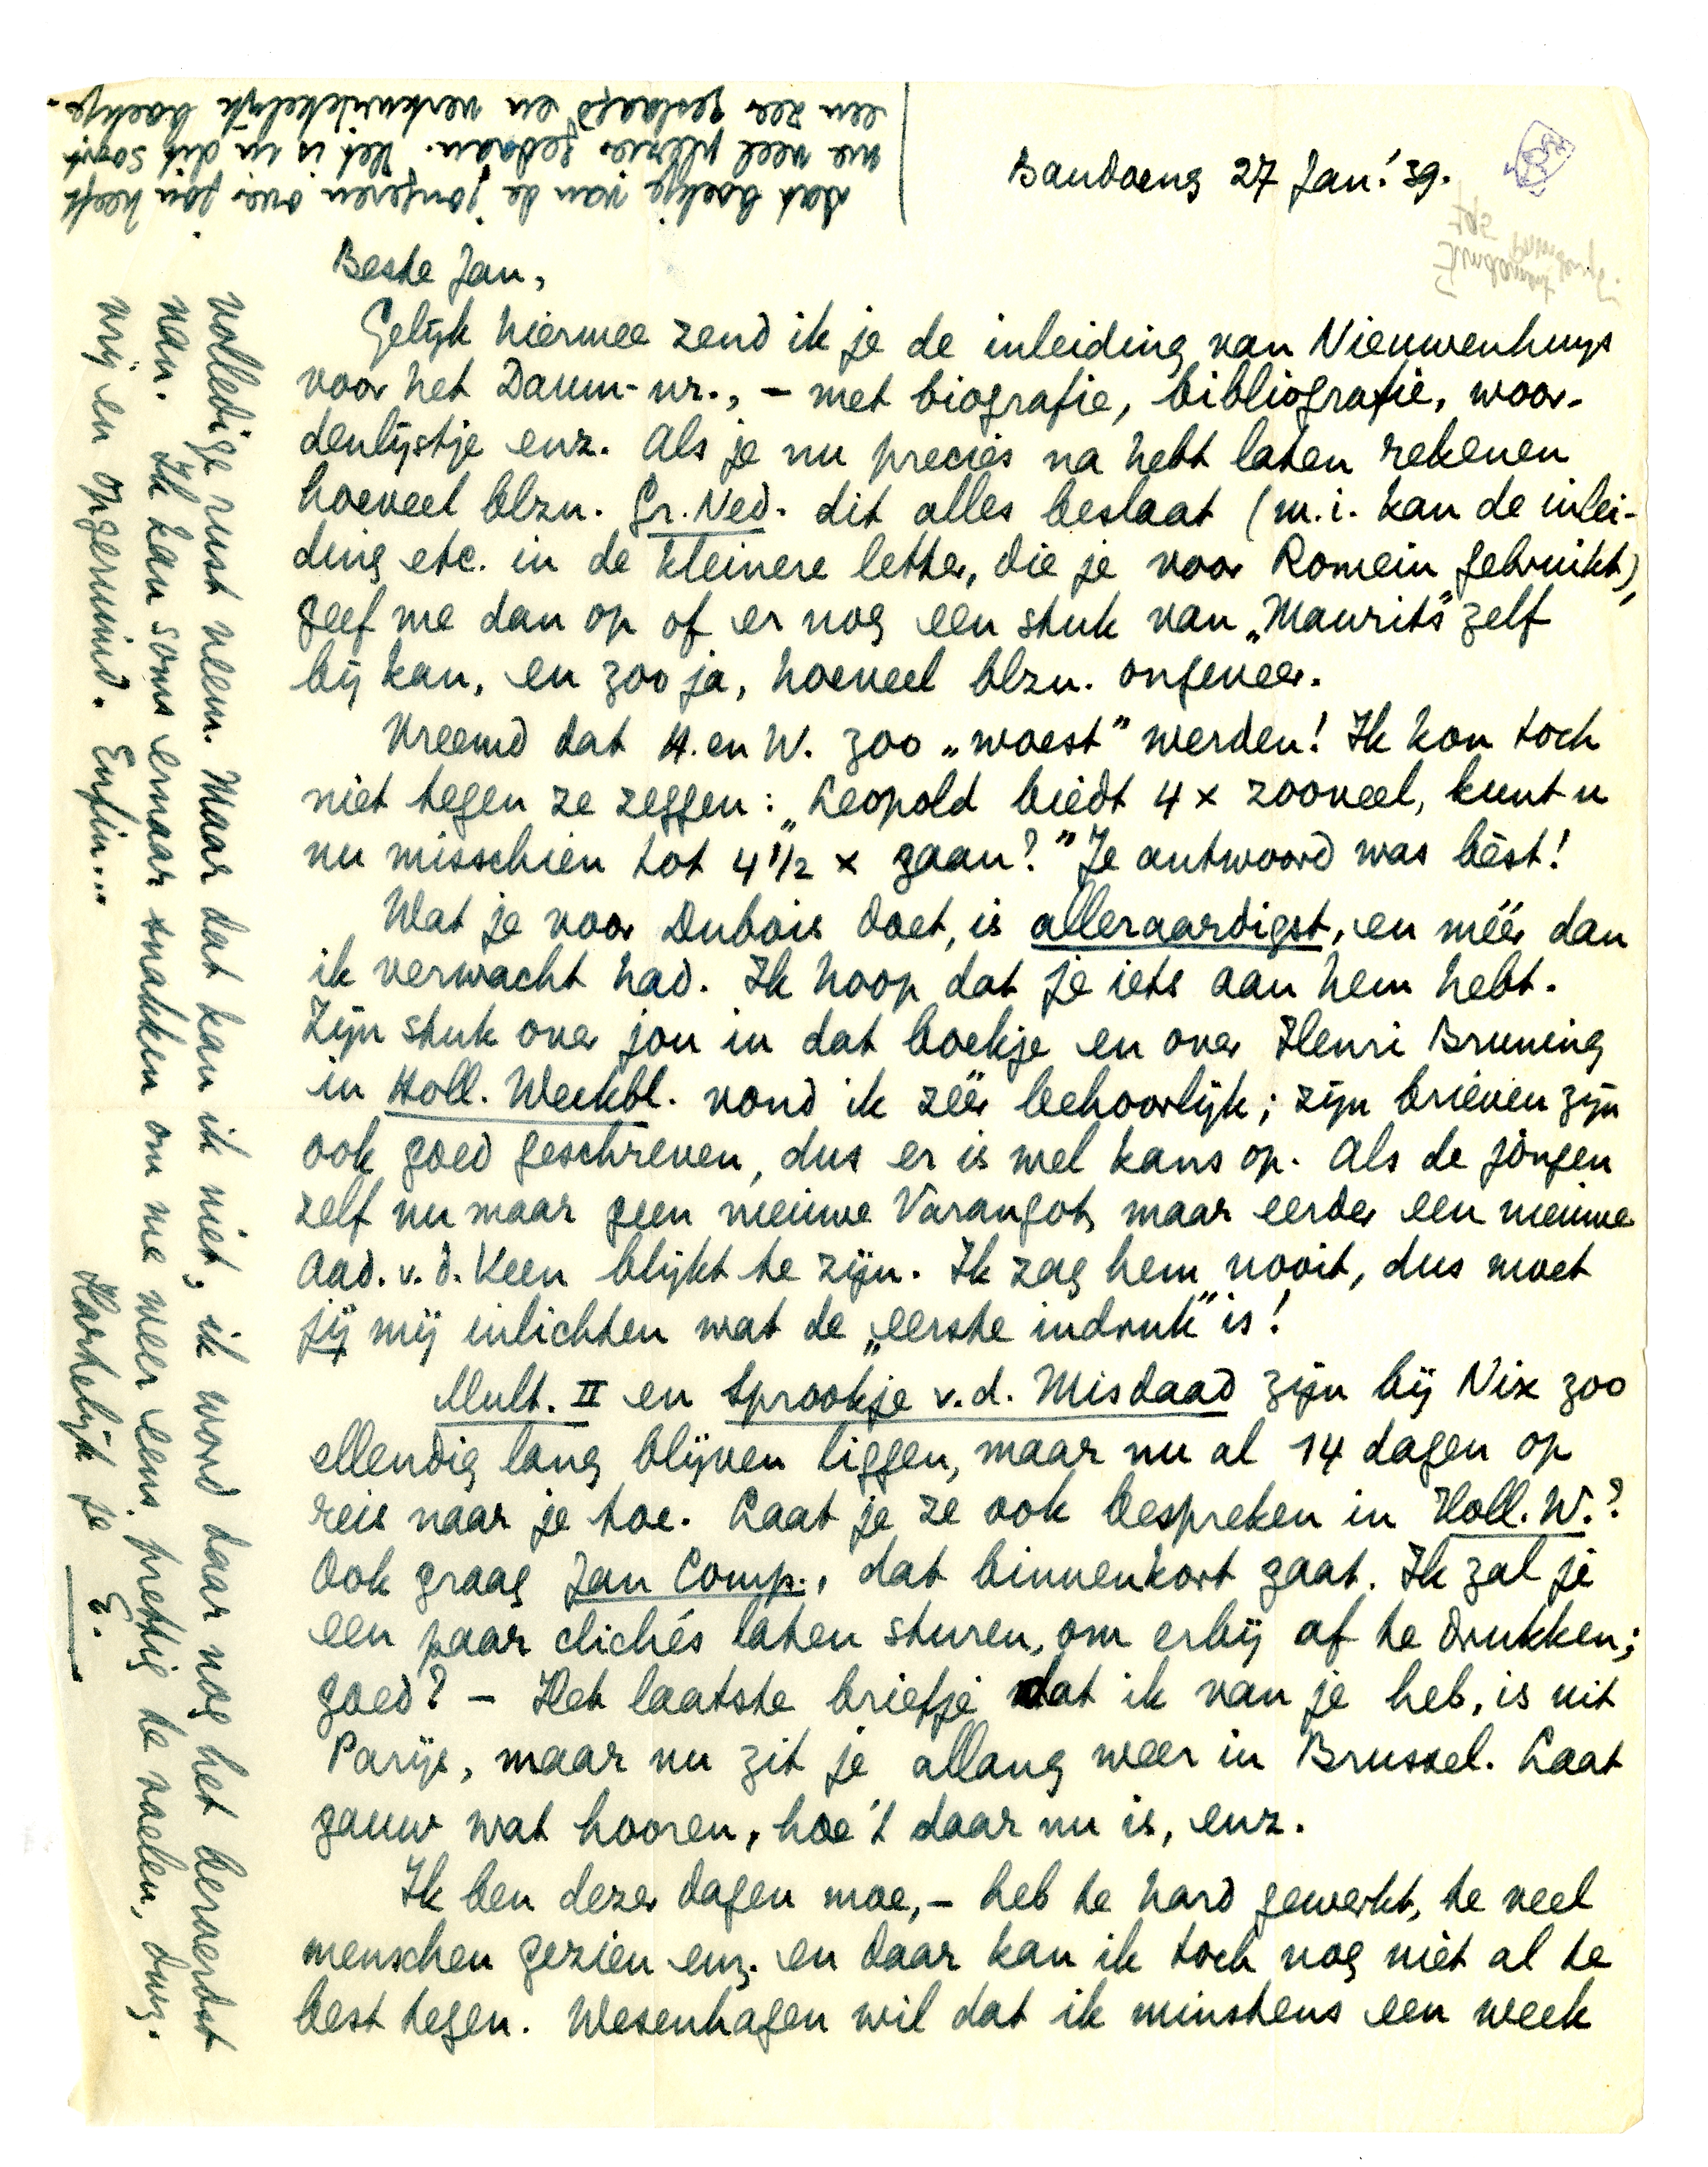 Bandoeng 27 Jan. '39.
Beste Jan,
Gelijk hiermee zend ik je de inleiding van Nieuwenhuys
voor het Daum-nr., – met biografie, bibliografie, woor-
denlijstje enz. Als je nu precies na hebt laten rekenen
hoeveel blzn. Gr. Ned. dit alles beslaat (m.i. kan de inlei-
ding etc. in de kleinere letter, die je voor Romein gebruikt),
geef me dan op of er nog een stuk van „Maurits" zelf
bij kan, en zoo ja, hoeveel blzn. ongeveer.
Vreemd dat H. en W. zoo „woest" werden! Ik kon toch
niet tegen ze zeggen: „Leopold biedt 4 x zooveel, kunt u
nu misschien tot 4 1/2 x gaan?" Je antwoord was bèst!
Wat je voor Dubois doet, is alleraardigst, en méér dan
ik verwacht had. Ik hoop dat je iets aan hem hebt.
Zijn stuk over jou in dat boekje en over Henri Bruning
in Holl. Weekbl. vond ik zéér behoorlijk; zijn brieven zijn
ook goed geschreven, dus er is wel kans op. Als de jongen
zelf nu maar geen nieuwe Varangot, maar eerder een nieuwe
Aad. v. d. Veen blijkt te zijn. Ik zag hem nooit, dus moet
jij mij inlichten wat de „eerste indruk" is!
Mult. II en Sprookje v. d. Misdaad zijn bij Nix zoo
ellendig lang blijven liggen, maar nu al 14 dagen op
reis naar je toe. Laat je ze ook bespreken in Holl. W.?
Ook graag Jan Comp., dat binnenkort gaat. Ik zal je
een paar clichés laten sturen, om erbij af te drukken;
goed? – Het laatste briefje dat ik van je heb, is uit
Parijs, maar nu zit je allang weer in Brussel. Laat
gauw wat hooren, hoe 't daar nu is, enz.
Ik ben dezer dagen moe, – heb te hard gewerkt, te veel
menschen gezien enz. en daar kan ik toch nog niet al te
best tegen. Wesenhagen wil dat ik minstens een week
volledige rust neem. Maar dat kan ik niet, ik word daar nog het beroerdst
van. Ik kan soms ernaar snakken om me weer eens prettig te voelen, dwz.
vrij en opgeruimd. Enfin...
Hartelijk je E.
Dat boekje van de jongeren over jou heeft
me veel plezier gedaan. Het is in dit soort
een zeer geslaagd en verkwikkelijk boekje.